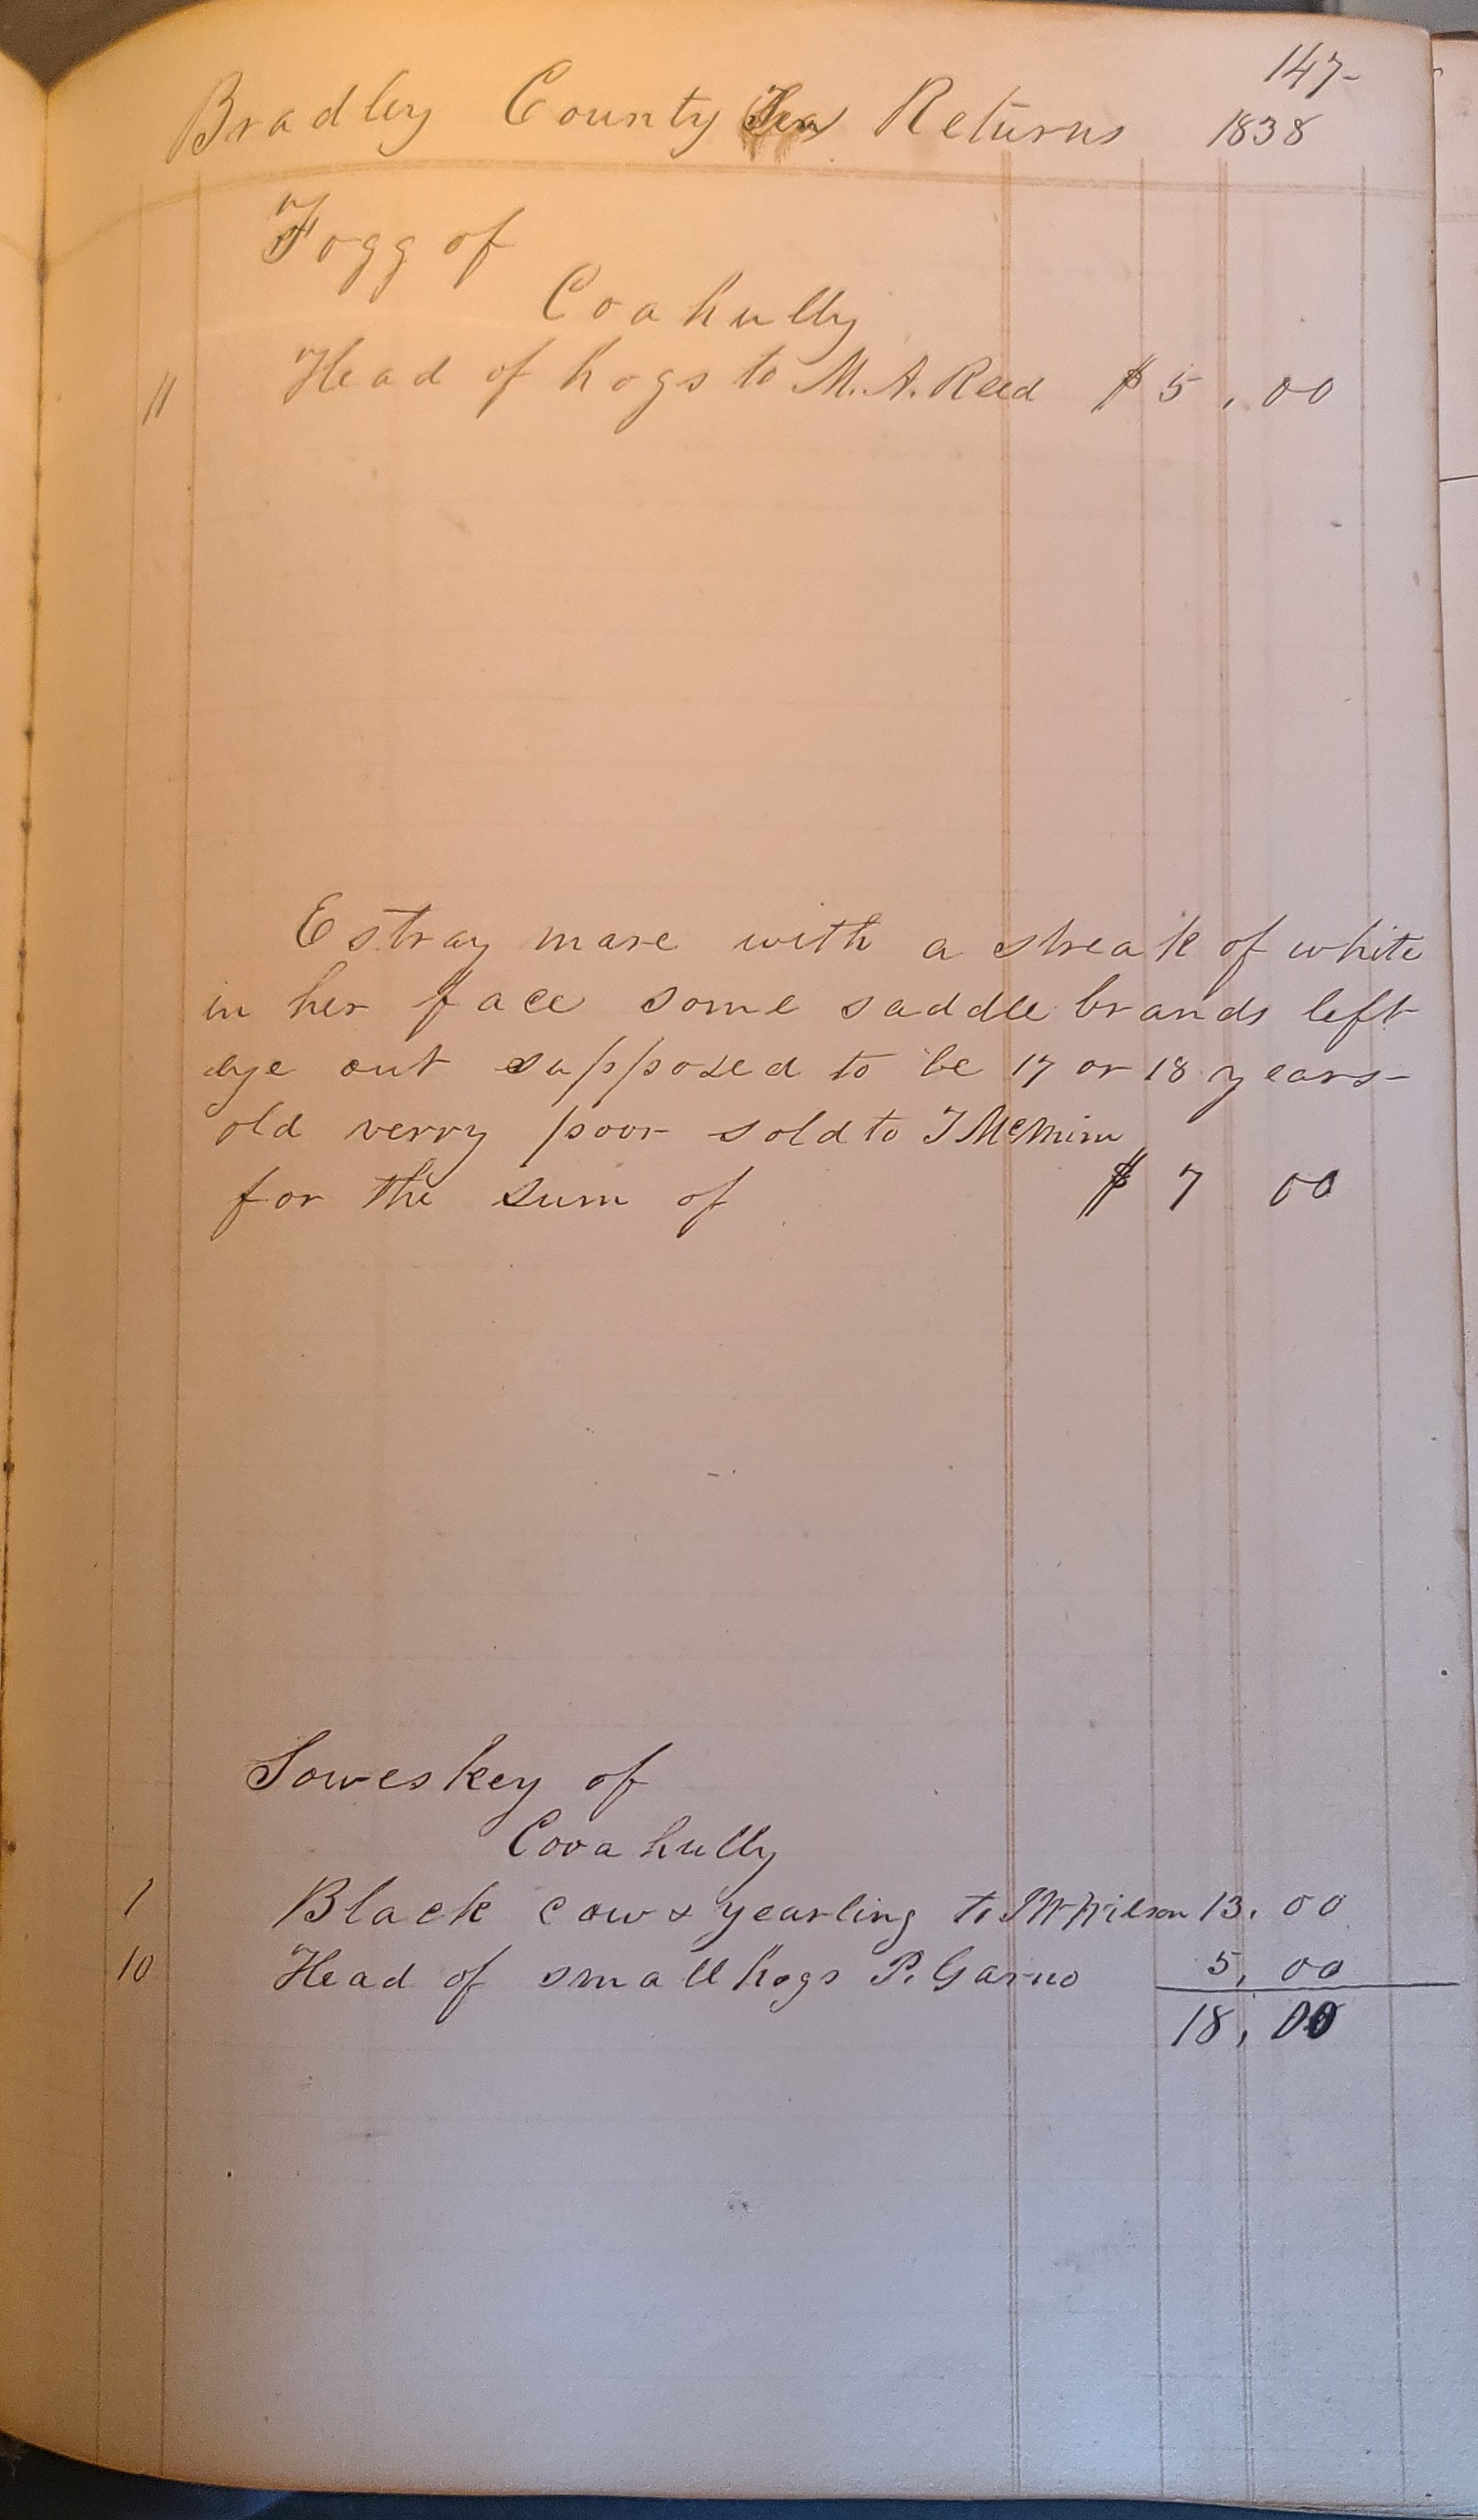 147-
Bradley County Ten Returns 1838
Fogg of
Coahully
11 Head of hogs to M. A. Reed $ 5, 00
Estray mare with a streak of white
in her face some saddle brands left
eye out supposed to be 17 or 18 years-
old verry poor sold to J McMinn
for the sum of $ 7 00
Soweskey of
Cooahully
1 Black cow & yearling to Wilson 13. 00
10 Head of small hogs P. Garno 5, 00
18, 00